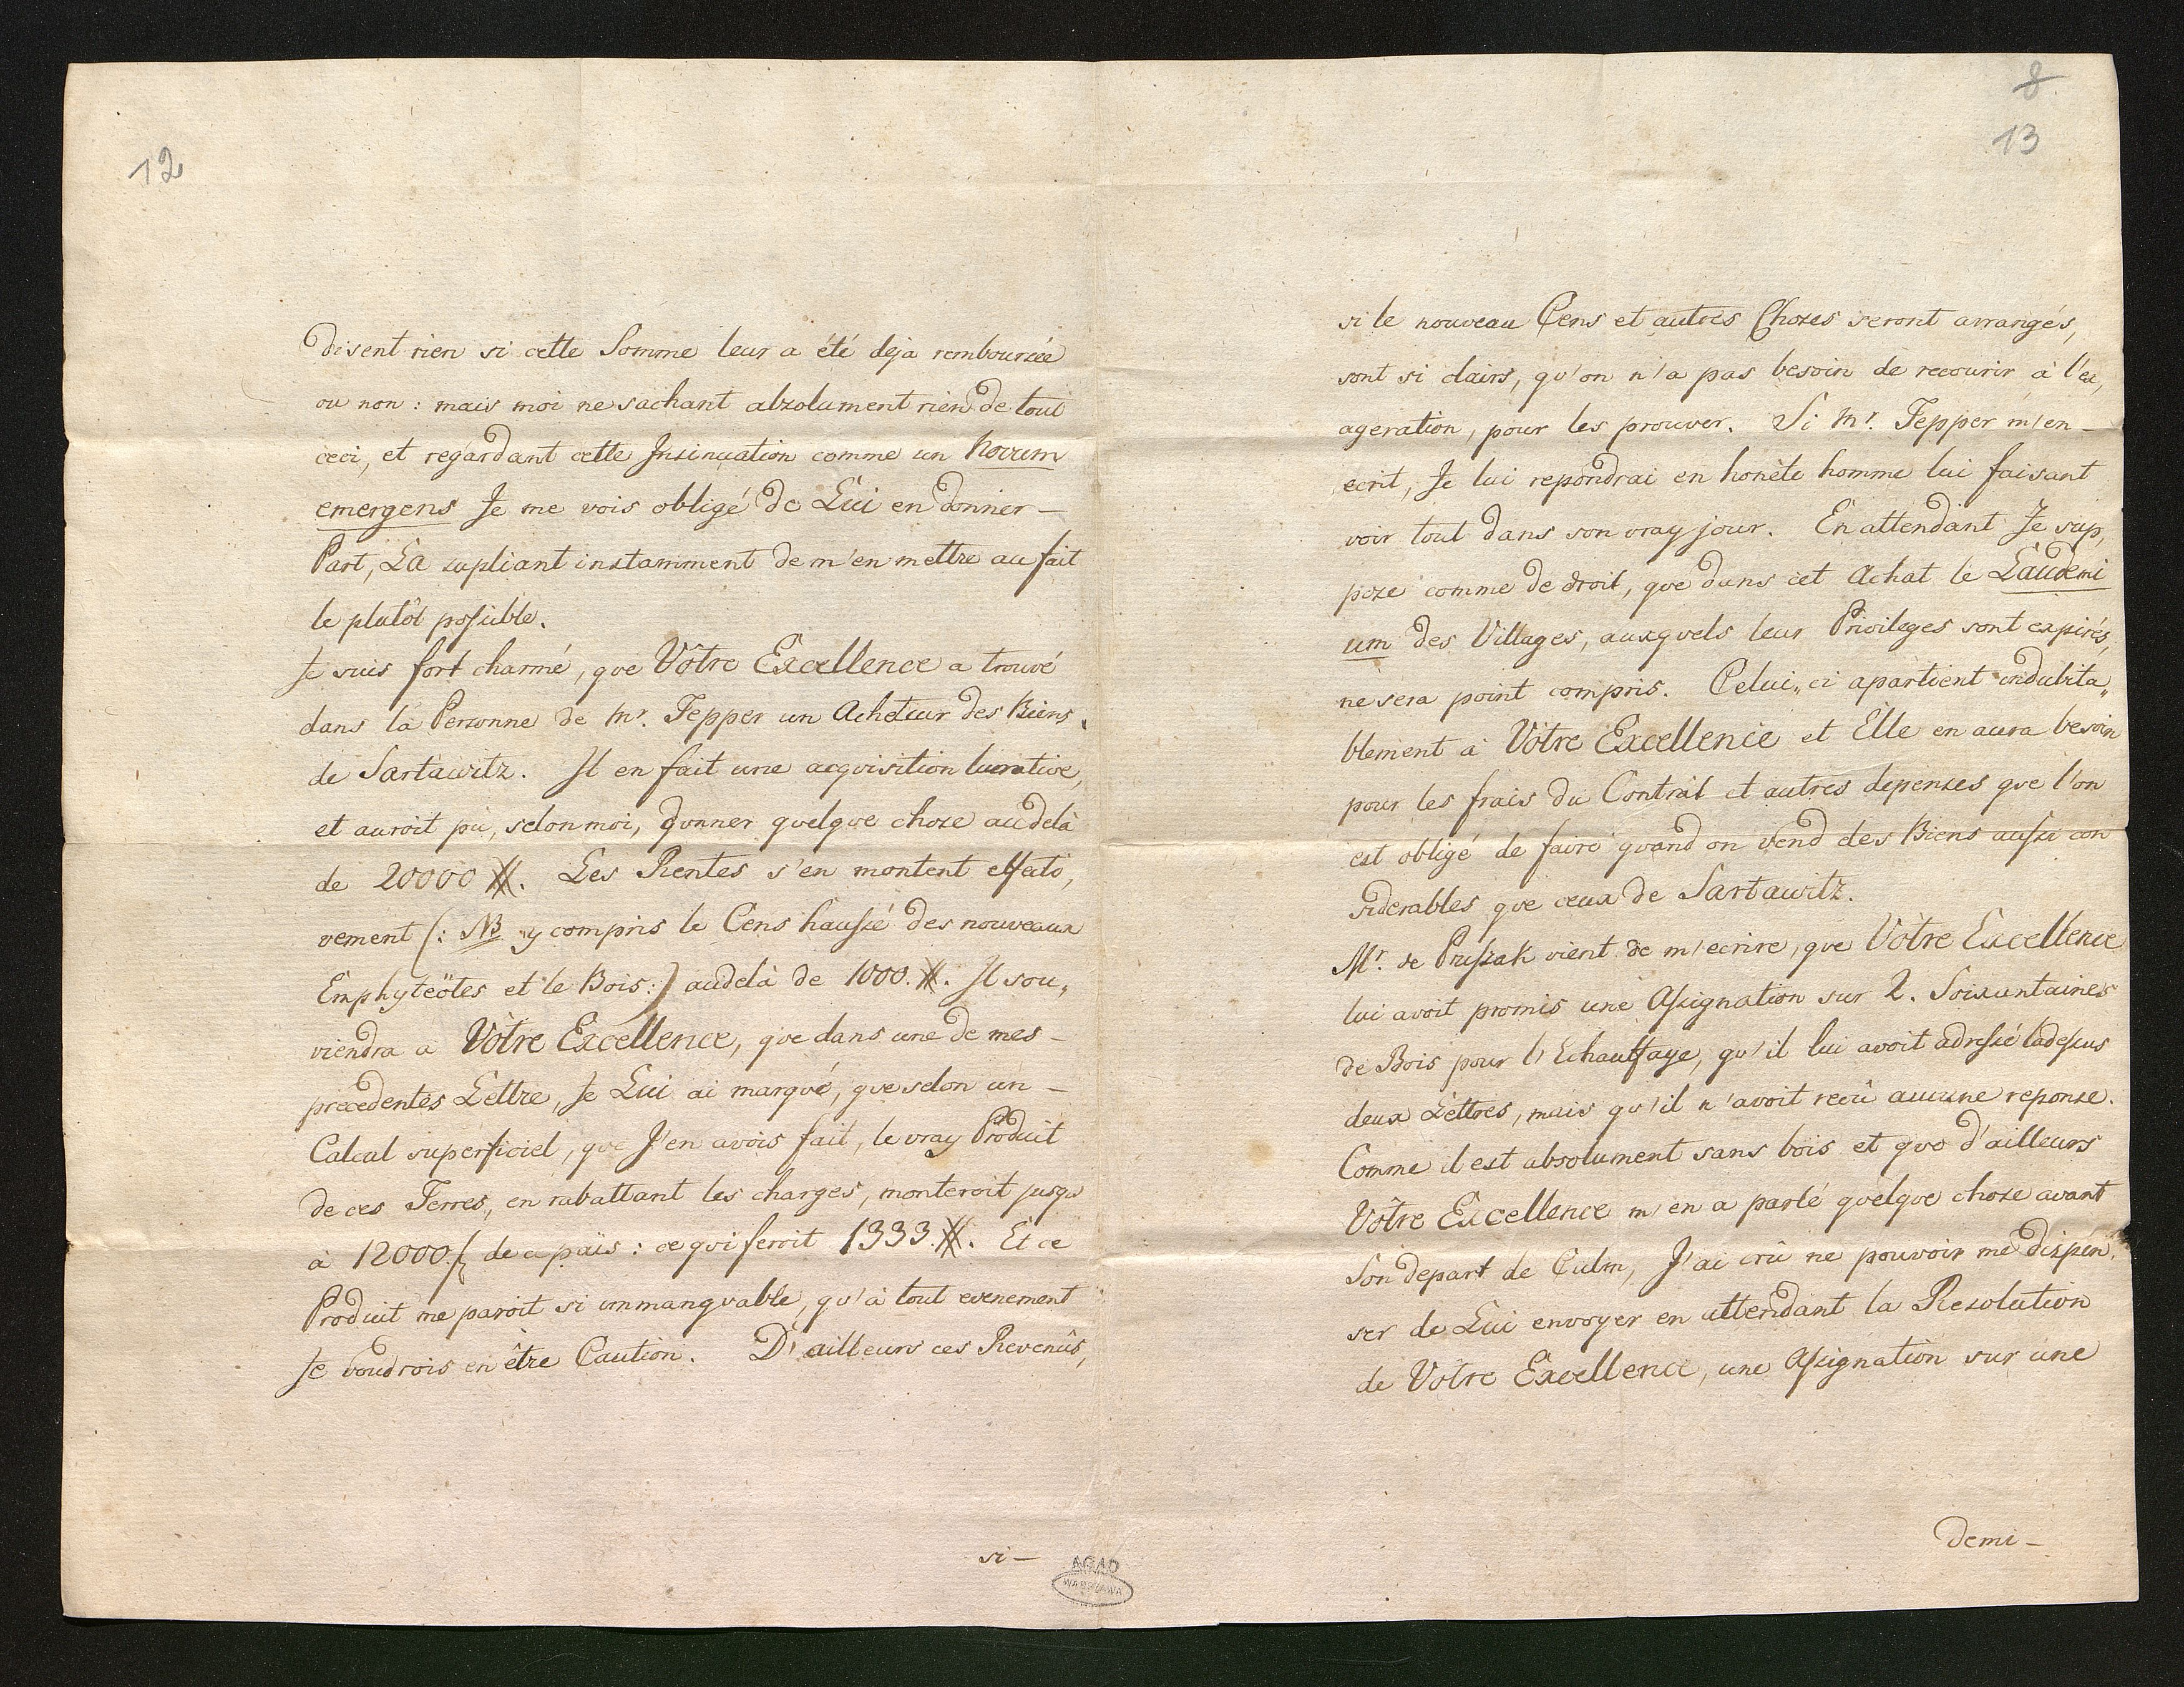 12
disent rien si cette Somme leur a été deja remboursée
ou non : mais moi ne sachant absolument rien de tout
ceci, et regardant cette Insinuation comme un novum
emergens Je me vois obligé de Lui en donner –
Part, La supliant instamment de m'en mettre au fait
le plutôt possible.
Je suis fort charmé, que Vôtre Excellence a trouvé
dans la Personne de Mr. Tepper un Acheteur des Biens
de Sartawitz. Il en fait une acquisition lucrative,
et auroit pu, selon moi, donner quelque chose audela
de 20000 #. Les Rentes s'en montent effecti,
vement (: NB y compris le Cens haussé des nouveaux
Emphyteötes et le Bois :) audelà de 1000. #. Il sou„
viendra a Vôtre Excellence, que dans une de mes –
precedentes Lettre, Je Lui ai marqué, que selon un –
Calcul superficiel, que J'en avois fait, le vray Produit
de ces Terres, en rabattant les charges, monteroit jusqu
à 12000 f de ce païs : ce qui feroit 1333. #. Et ce
Produit me paroit si immanquable, qu'à tout evenement
Je voudrois en être Caution. D'ailleurs ces Revenûs,
si –
AGAD
WARSZAWA
8
13
si le nouveau Cens et autres Choses seront arrangés,
sont si clairs, qu'on n'a pas besoin de recourir à l'ex,
ageration, pour les prouver. Si Mr. Tepper m'en –
ecrit, Je lui repondrai en honète homme lui faisant
voir tout dans son vray jour. En attendant Je sup,
pose comme de droit, que dans cet Achat le Laudemi
um des Villages, auxquels leur Privileges sont expirés,
ne sera point compris. Celui„ci apartient indubita„
blement à Vôtre Excellence et Elle en aura besoin
pour les frais du Contràt et autres depenses que l'on
est obligé de faire quand on vend des Biens aussi con
siderables que ceux de Sartawitz.
Mr. de Prussak vient de m'ecrire, que Vôtre Excellence
lui avoit promis une Assignation sur 2. Soixantaines
de Bois pour l'Echauffage, qu'il lui avoit adressé ladessus
deux Lettres, mais qu'il n'avoit reçû aucune reponse.
Comme il est absolument sans bois et que d'ailleurs
Vôtre Excellence m'en a parlé quelque chose avant
Son depart de Culm, J'ai crû ne pouvoir me dispen,
ser de Lui envoyer en attendant la Resolution
de Vôtre Excellence, une Assignation sur une
demi –